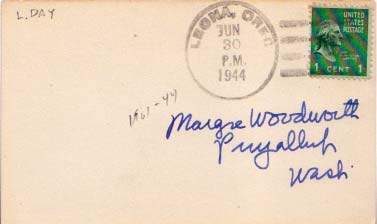 L. DAY
LEONA, OREG
JUN
30
P.M.
1944
UNITED
STATES
POSTAGE
1 CENT 1
Margie Woodworth
Puyallup
Wash